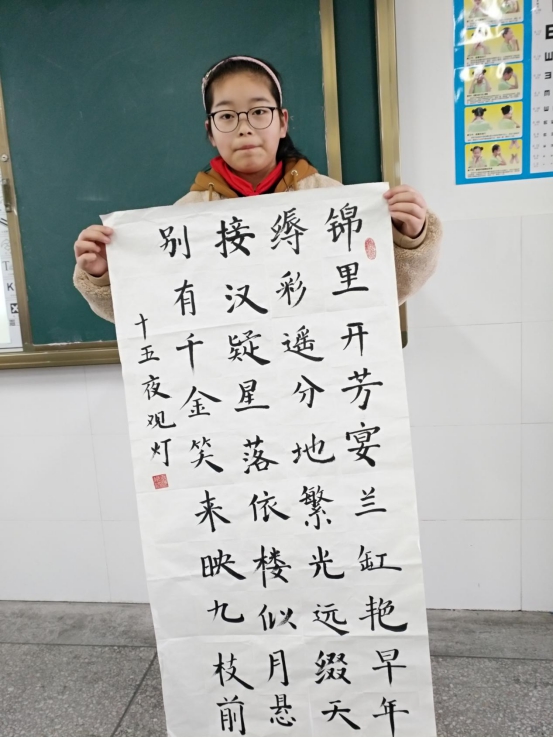 锦里开芳宴兰缸艳早年
缛彩遥分地繁光远缀天
接汉疑星落依楼似月悬
别有千金笑来映九枝前
十五夜观灯